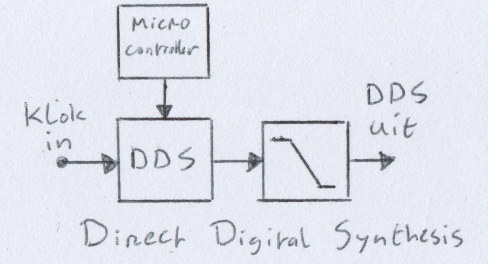 Micro
controller
Klok
in
DDS
DDS
uit
Direct Digital Synthesis